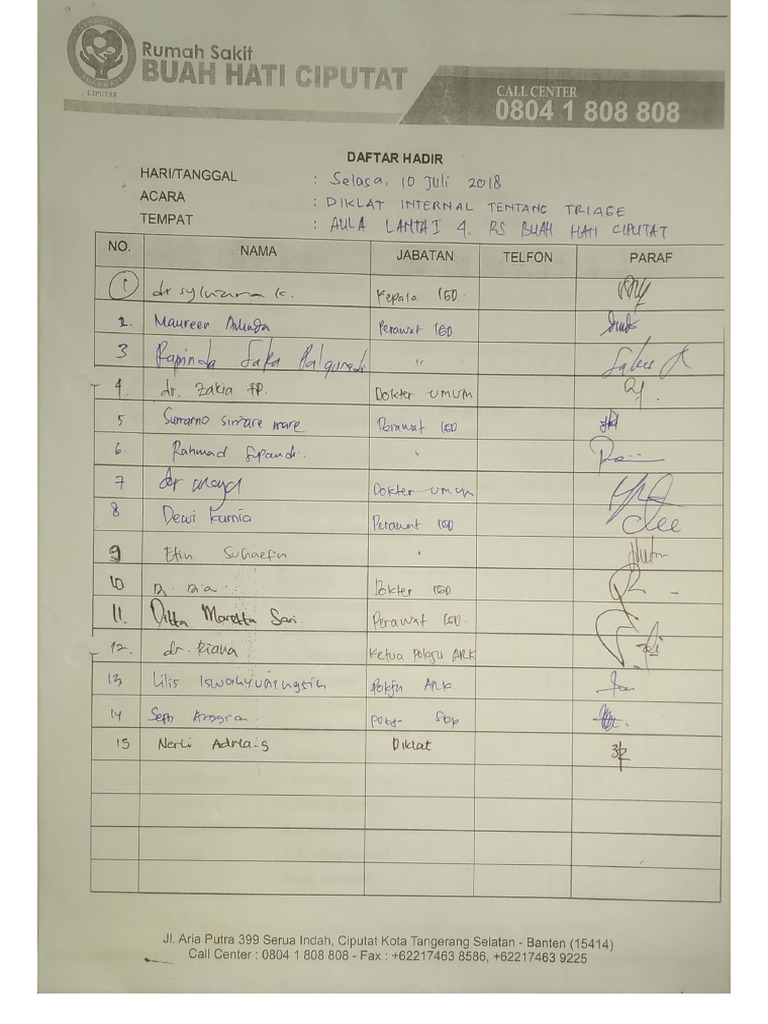 Rumah Sakit
BUAH HATI CIPUTAT
CIPUTAT
CALL CENTER
0804 1 808 808
DAFTAR HADIR
HARI/TANGGAL : Selasa, 10 Juli 2018
ACARA : DIKLAT INTERNAL TENTANG TRIAGE
TEMPAT : AULA LANTAI 4. RS BUAH HATI CIPUTAT
NO. NAMA JABATAN TELFON PARAF
1 dr sylviana k. Kepala IGD.
2. Maureen Perawat IGD
3 Rapinda Saka Palgunadi "
4. dr. Zakia FP. Dokter UMUM
5 Sumarno simare mare Perawat IGD
6. Rahmad "
7 dr Dokter UMUM
8 Dewi Kurnia Perawat IGD
9 Etin Suhaetin "
10 Dr. Dia Dokter IGD
11. Ditta Maretta Sari Perawat IGD.
12. dr. Riana Ketua Pokja ARK
13 Lilis Iswahyuningsih Pokja ARK
14 Septi
15 Nerli Adria.s Diklat
Jl. Aria Putra 399 Serua Indah, Ciputat Kota Tangerang Selatan - Banten (15414)
Call Center : 0804 1 808 808 - Fax : +62217463 8586, +62217463 9225